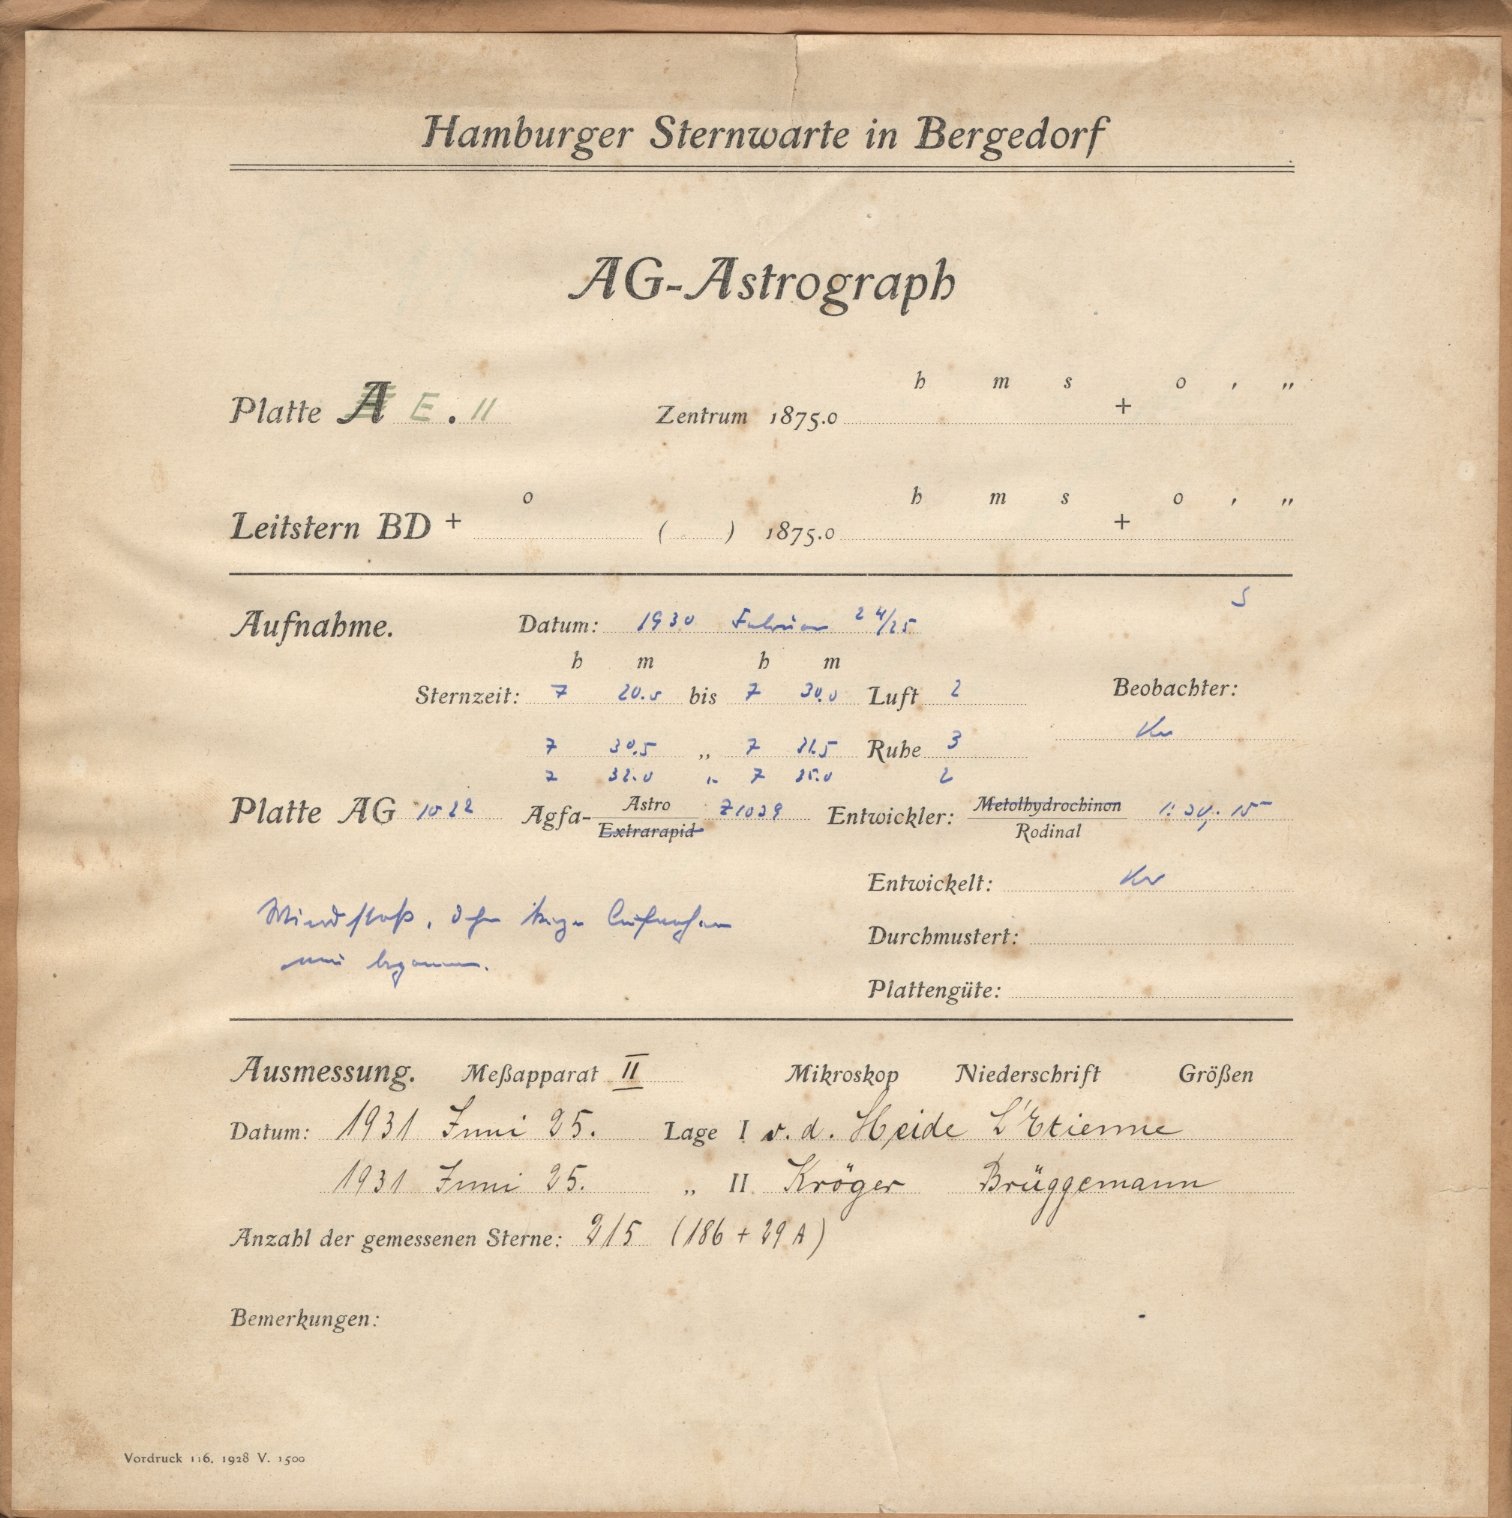 Hamburger Sternwarte in Bergedorf
AG-Astrograph
h m s o , „
Platte A E . 11 Zentrum 1875.0 +
o h m s o , „
Leitstern BD + ( ) 1875.0 +
S
Aufnahme. Datum: 1930 Februar 24/25
h m h m
Sternzeit: 7 20.0 bis 7 30.0 Luft 2 Beobachter:
Kr
7 30.5 „ 7 31.5 Ruhe 3
7 32.0 „ 7 35.0 2
Platte AG 1022 Agfa- Astro Extrarapid Z1039 Entwickler: Metolhydrochinon Rodinal 1:30, 15
Entwickelt: Kr
Windstoß,
Durchmustert:
begonnen.
Plattengüte:
Ausmessung. Meßapparat II Mikroskop Niederschrift Größen
Datum: 1931 Juni 25. Lage I v. d. Heide L'Etienne
1931 Juni 25. „ II Kröger Brüggemann
Anzahl der gemessenen Sterne: 215 (186 + 29 A)
Bemerkungen:
Vordruck 116. 1928 V. 1500